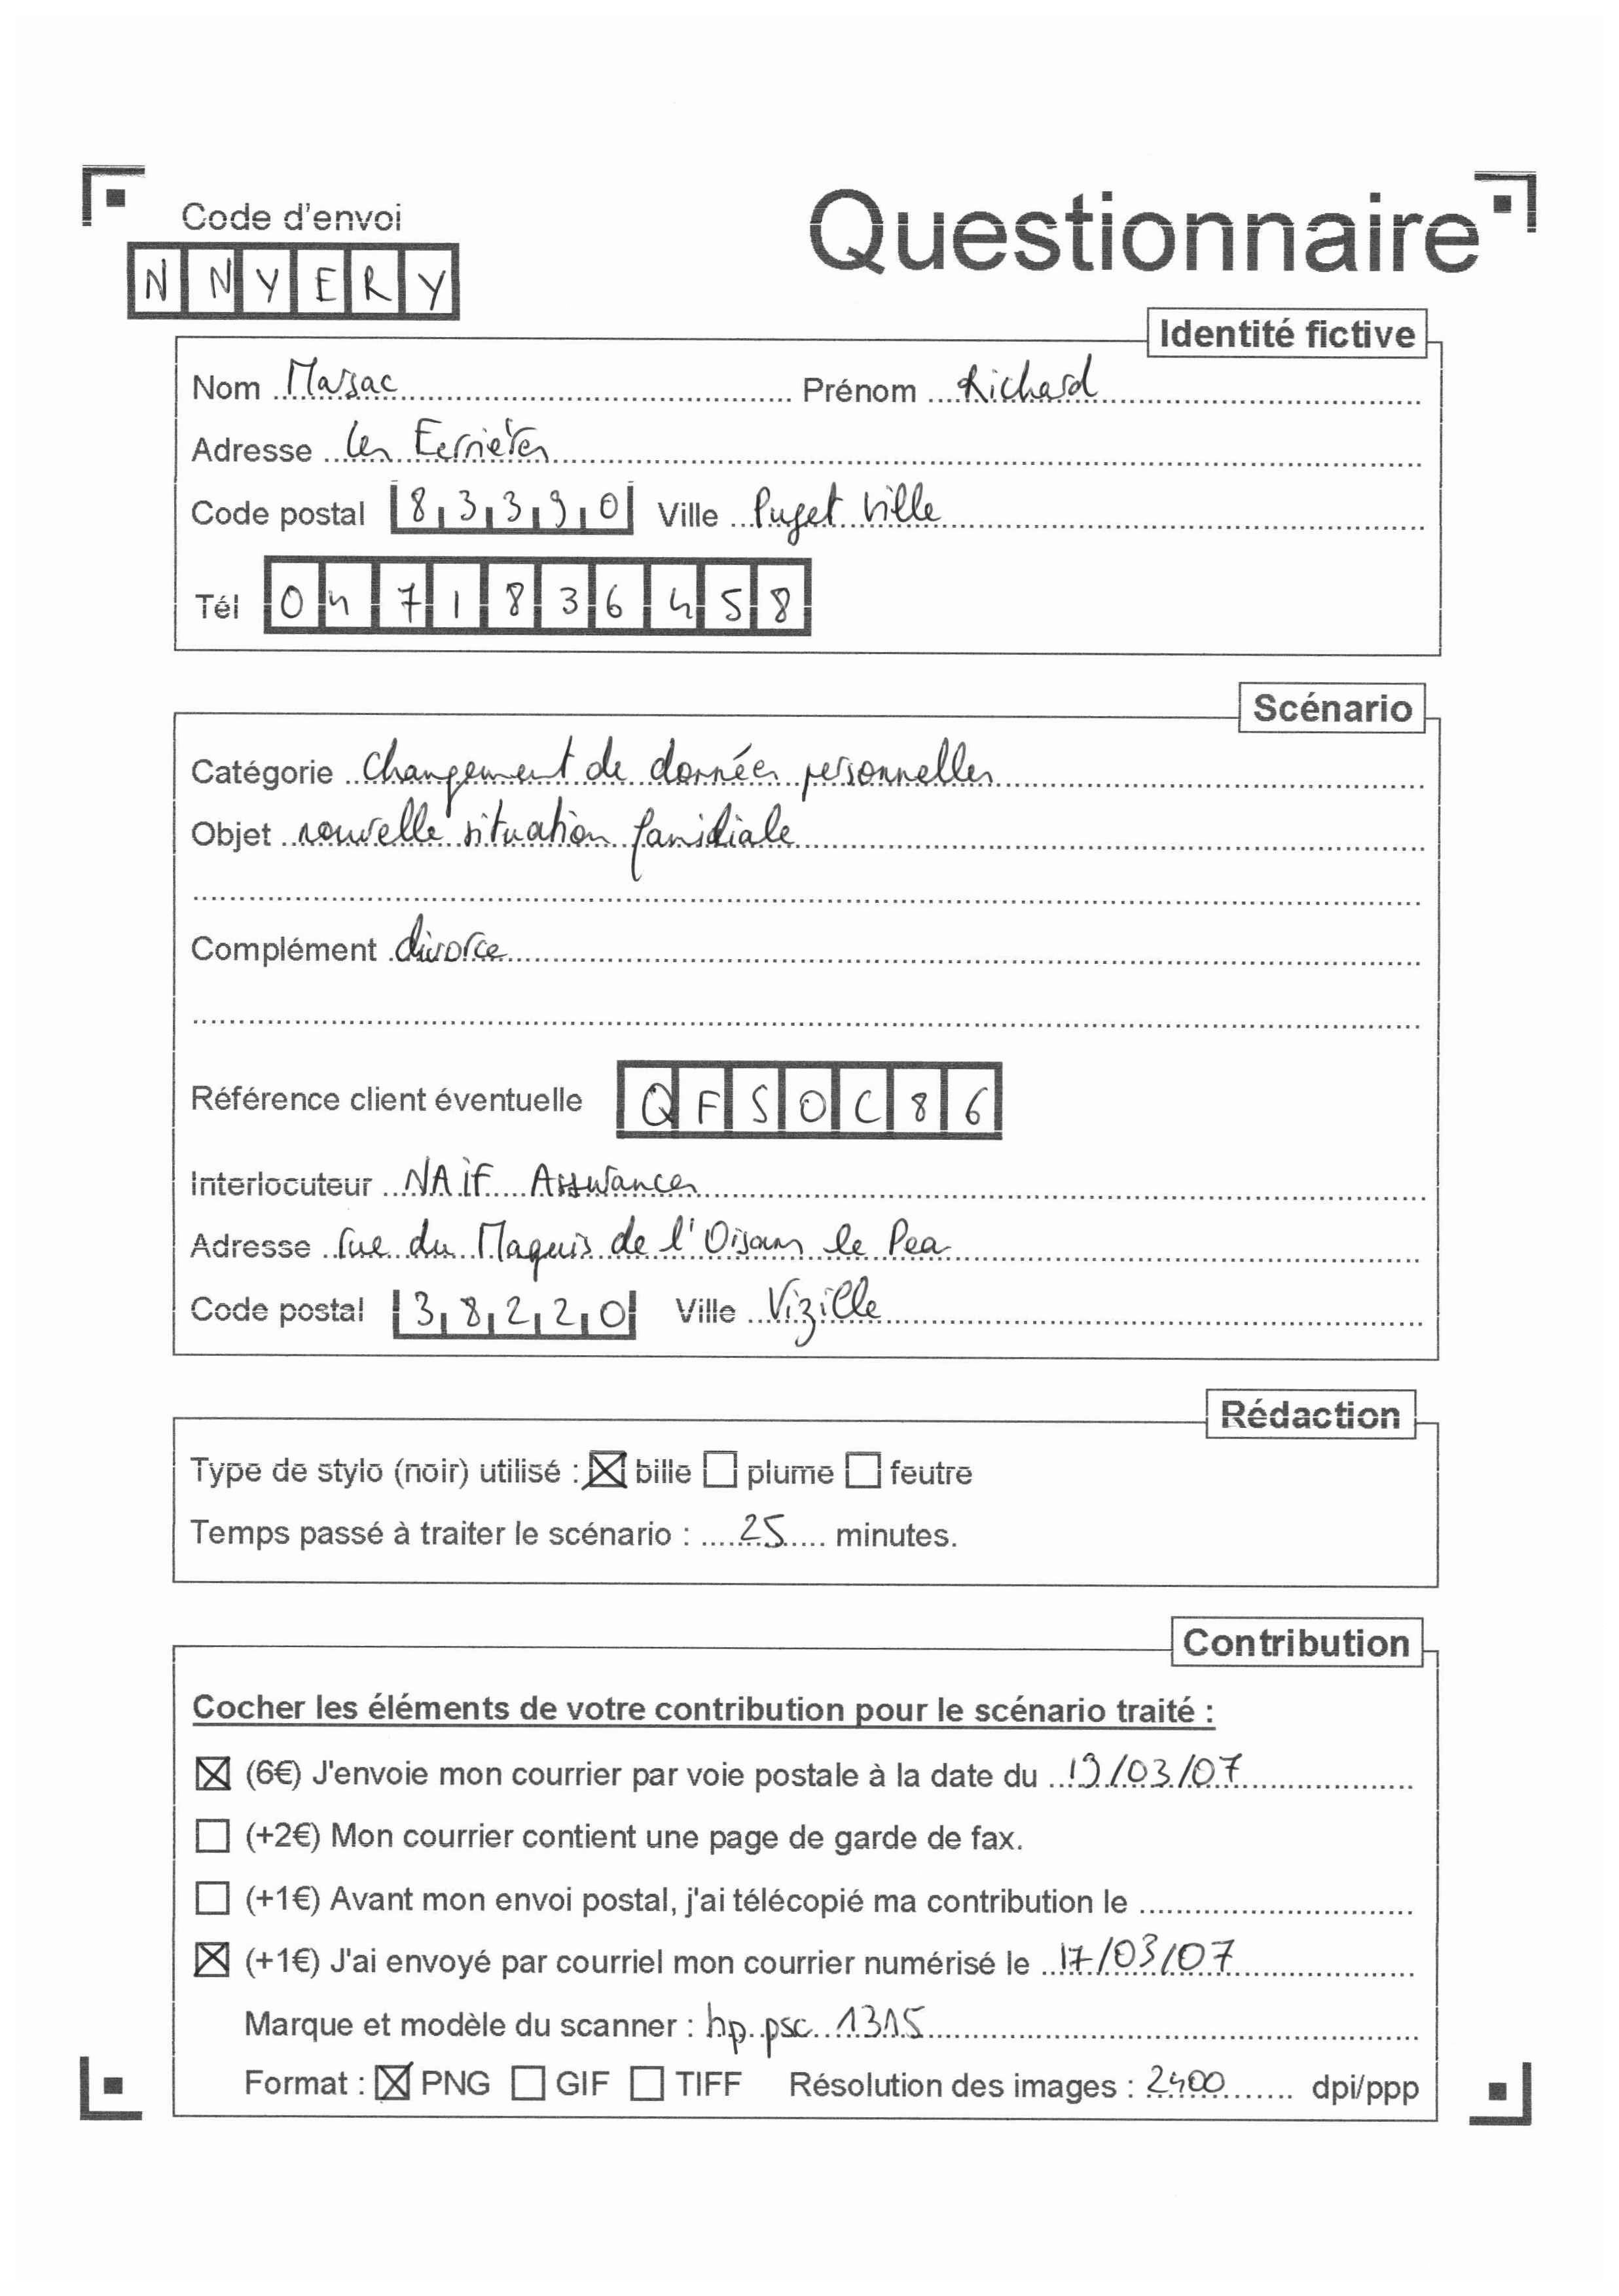 Code d'envoi
Questionnaire
NNYERY
Identité fictive
Nom Marsac Prénom Richard
Adresse les Ferrières
Code postal 83390 Ville Puget Ville
Tél 0471836458
Scénario
Catégorie changement de données personnelles
Objet nouvelle situation familiale
Complément divorce
Référence client éventuelle QFSOC86
Interlocuteur NAIF Assurances
Adresse rue du Maquis de l'Oisans le Pea
Code postal 38220 Ville Vizille
Rédaction
Type de stylo (noir) utilisé : ☒ bille ☐ plume ☐ feutre
Temps passé à traiter le scénario : 25 minutes.
Contribution
Cocher les éléments de votre contribution pour le scénario traité :
☒ (6€) J'envoie mon courrier par voie postale à la date du 19/03/07
☐ (+2€) Mon courrier contient une page de garde de fax.
☐ (+1€) Avant mon envoi postal, j'ai télécopié ma contribution le
☒ (+1€) J'ai envoyé par courriel mon courrier numérisé le 17/03/07
Marque et modèle du scanner : hp psc 1315
Format : ☒ PNG ☐ GIF ☐ TIFF Résolution des images : 2400 dpi/ppp